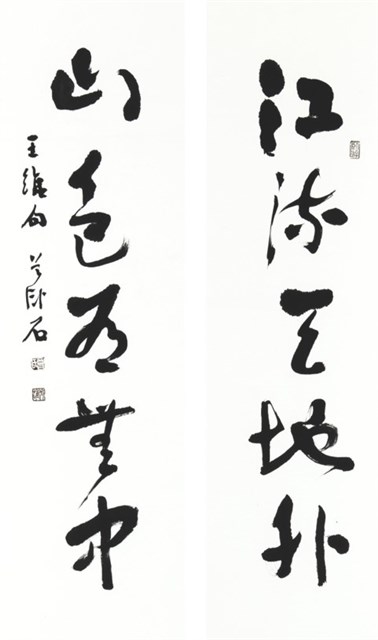 江流天地外
山色有無中
王維句
卧石